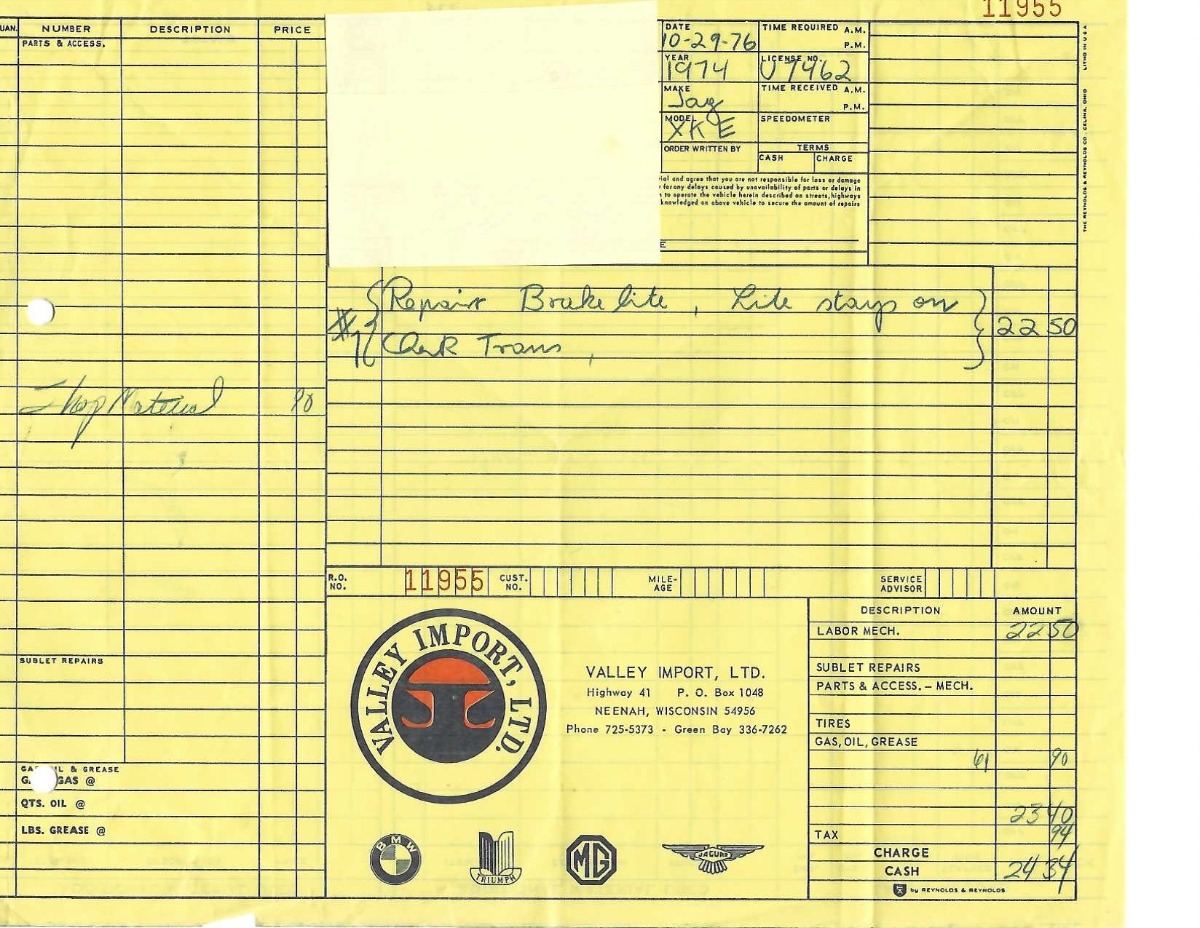 11955
QUAN. NUMBER DESCRIPTION PRICE
PARTS & ACCESS.
Shop Material 90
SUBLET REPAIRS
GAS, OIL & GREASE
GAS @
QTS. OIL @
LBS. GREASE @
DATE
10-29-76
TIME REQUIRED A.M.
P.M.
YEAR
1974
LICENSE NO.
U7462
MAKE
Jag
TIME RECEIVED A.M.
P.M.
MODEL
XKE
SPEEDOMETER
ORDER WRITTEN BY
TERMS
CASH CHARGE
ial and agree that you are not responsible for loss or damage
for any delays caused by unavailability of parts or delays in
to operate the vehicle herein described on streets, highways
knowledged on above vehicle to secure the amount of repairs
E
LITHO IN U S A
THE REYNOLDS & REYNOLDS CO., CELINA, OHIO
#1 Repair Brake lite, Lite stays on 22 50
Chek Trans,
R.O. NO. 11955 CUST. NO. MILE-AGE SERVICE ADVISOR
VALLEY IMPORT, LTD.
VALLEY IMPORT, LTD.
Highway 41 P. O. Box 1048
NEENAH, WISCONSIN 54956
Phone 725-5373 - Green Bay 336-7262
BMW
TRIUMPH
MG
JAGUAR
DESCRIPTION AMOUNT
LABOR MECH. 22 50
SUBLET REPAIRS
PARTS & ACCESS. – MECH.
TIRES
GAS, OIL, GREASE
61 90
23 40
TAX 94
CHARGE
CASH 24 34
by REYNOLDS & REYNOLDS